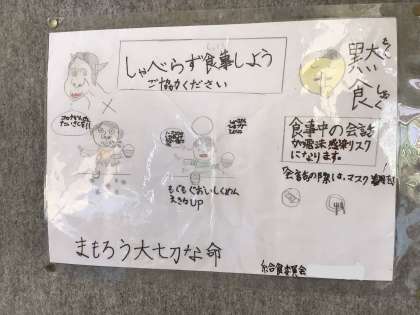 しゃべらず食事しよう
ご協力ください
黙食
もくしょく
食事中の会話
が飛沫感染リスク
になります。
会話の際は、マスク着用を!
もぐもぐおいしくめん
えきカUP
まもろう大切な命
給食委員会